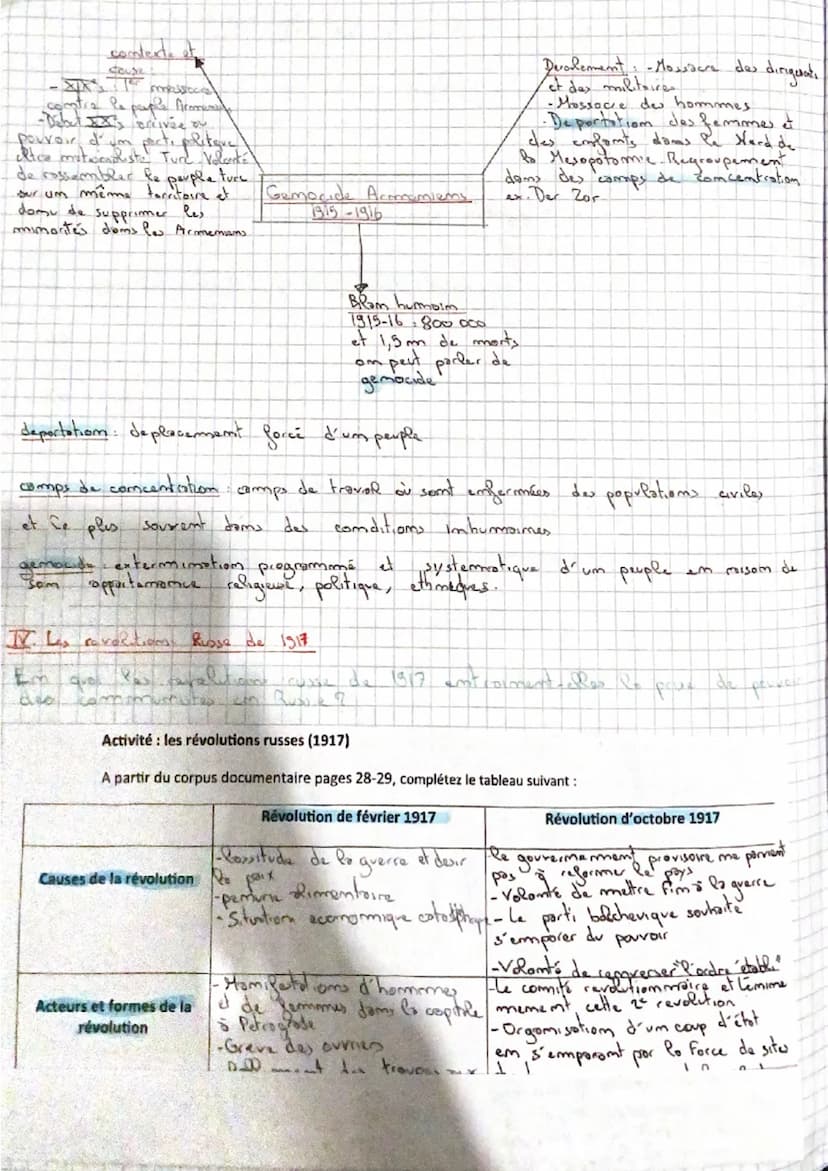 contexte et
cause :
- XIXe s : 1er massacre
contre le peuple Armenien
- Debut XXe s arrivée au
pouvoir d'un parti politique
ultra nationaliste Turc. Volonté
de rassembler le peuple turc
sur un même territoire et
donc de supprimer les
minorités dans les Armenians
Genocide Armeniens
1915 - 1916
Deroulement : - Massacre des dirigeants
et des militaires
- Massacre des hommes
- Deportation des femmes et
des enfants dans le Nord de
la Mesopotamie. Regroupement
dans des camps de concentration
ex. Der Zor
Bilan humain
1915-16 : 800 000
et 1,5m de morts
on peut parler de
genocide
deportation : deplacement forcé d'un peuple
camps de concentration : camps de travail où sont enfermées des populations civiles
et le plus souvent dans des conditions inhumaines
genocide : extermination programmé et systematique d'un peuple en raison de
son appartenance religieuse, politique, ethniques.
IV. Les revolutions Russe de 1917
En quoi les revolutions russe de 1917 entrainent-elles la prise de pouvoir
des communistes en Russie ?
Activité : les révolutions russes (1917)
A partir du corpus documentaire pages 28-29, complétez le tableau suivant :
Révolution de février 1917
Révolution d'octobre 1917
Causes de la révolution
- lassitude de la guerre et desir
la paix
- penurie alimentaire
- Situation economique catastphique
le gouvernement provisoire ne parvient
pas à reformer le pays
- Volonté de mettre fin à la guerre
- Le parti bolchevique souhaite
s'emparer du pouvoir
- Volonté de renverser "l'ordre établi"
Acteurs et formes de la
révolution
- Manifestations d'hommes
et de femmes dans la capitale
à Petrograde
- Greve des ouvriers
- Le comité revolutionnaire et Lénine
menent cette 2e revolution
- Organisation d'un coup d'état
en s'emparant par la force de sites